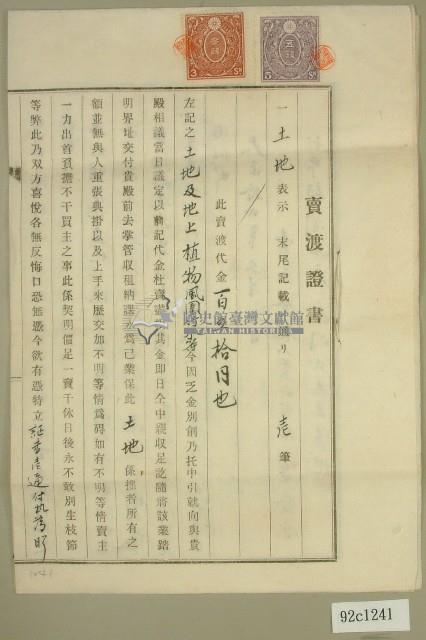 賣渡證書
一 土地 表示 末尾記載 ノ 通リ 壱 筆
此賣渡代金 百 拾円也
左記之 土地及地上植物 今因乏金別創乃托中引就向與貴
殿相議當日議定以前記代金杜賣 其金即日仝中親收足訖隨將該業踏
明界址交付貴殿前去掌管收租納課 為己業保此 土地 係 者所有之
額並無與人重張典掛以及上手來歷交加不明等情為碍如有不明等情賣主
一力出首抵擋不干買主之事此係契明價足一賣千休日後永不敢別生枝節
等弊此乃双方喜悅各無反悔口恐無憑今欲有憑特立 証書壱通付執為照
3 Sⁿ
5 Sⁿ
國史館臺灣文獻館
TAIWAN HISTORICA
92c1241